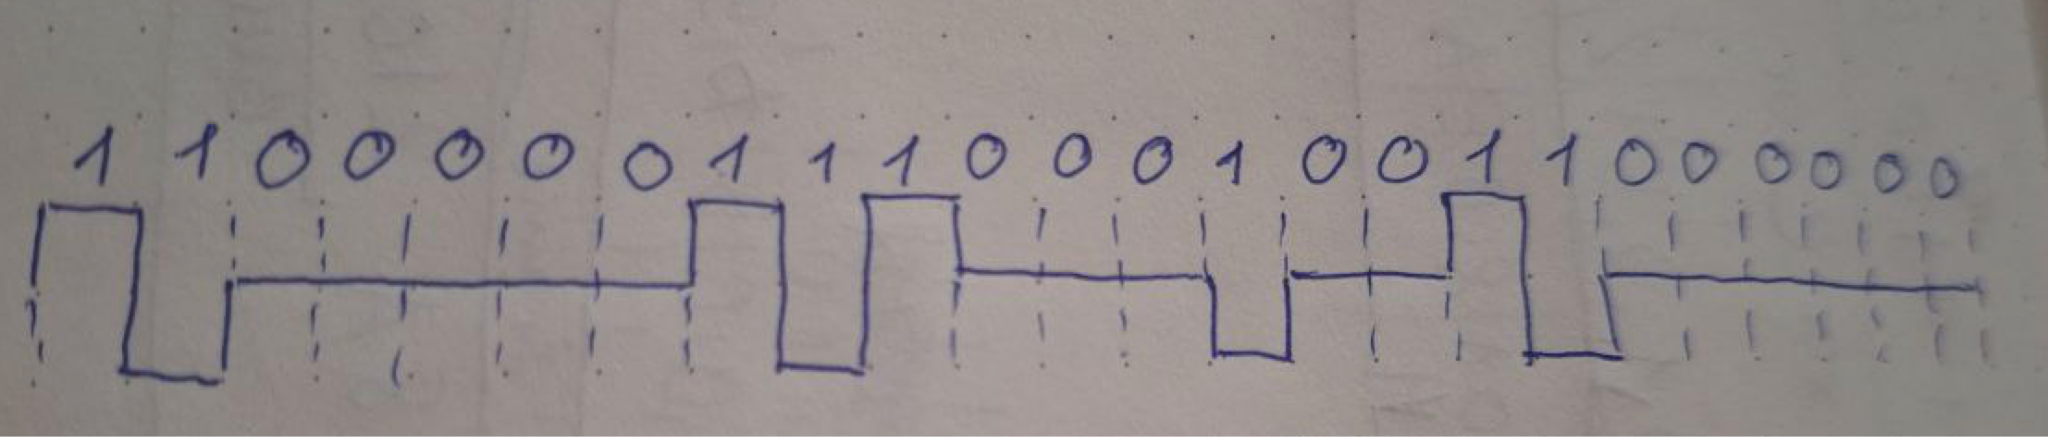 1 1 0 0 0 0 0 1 1 1 0 0 0 1 0 0 1 1 0 0 0 0 0 0